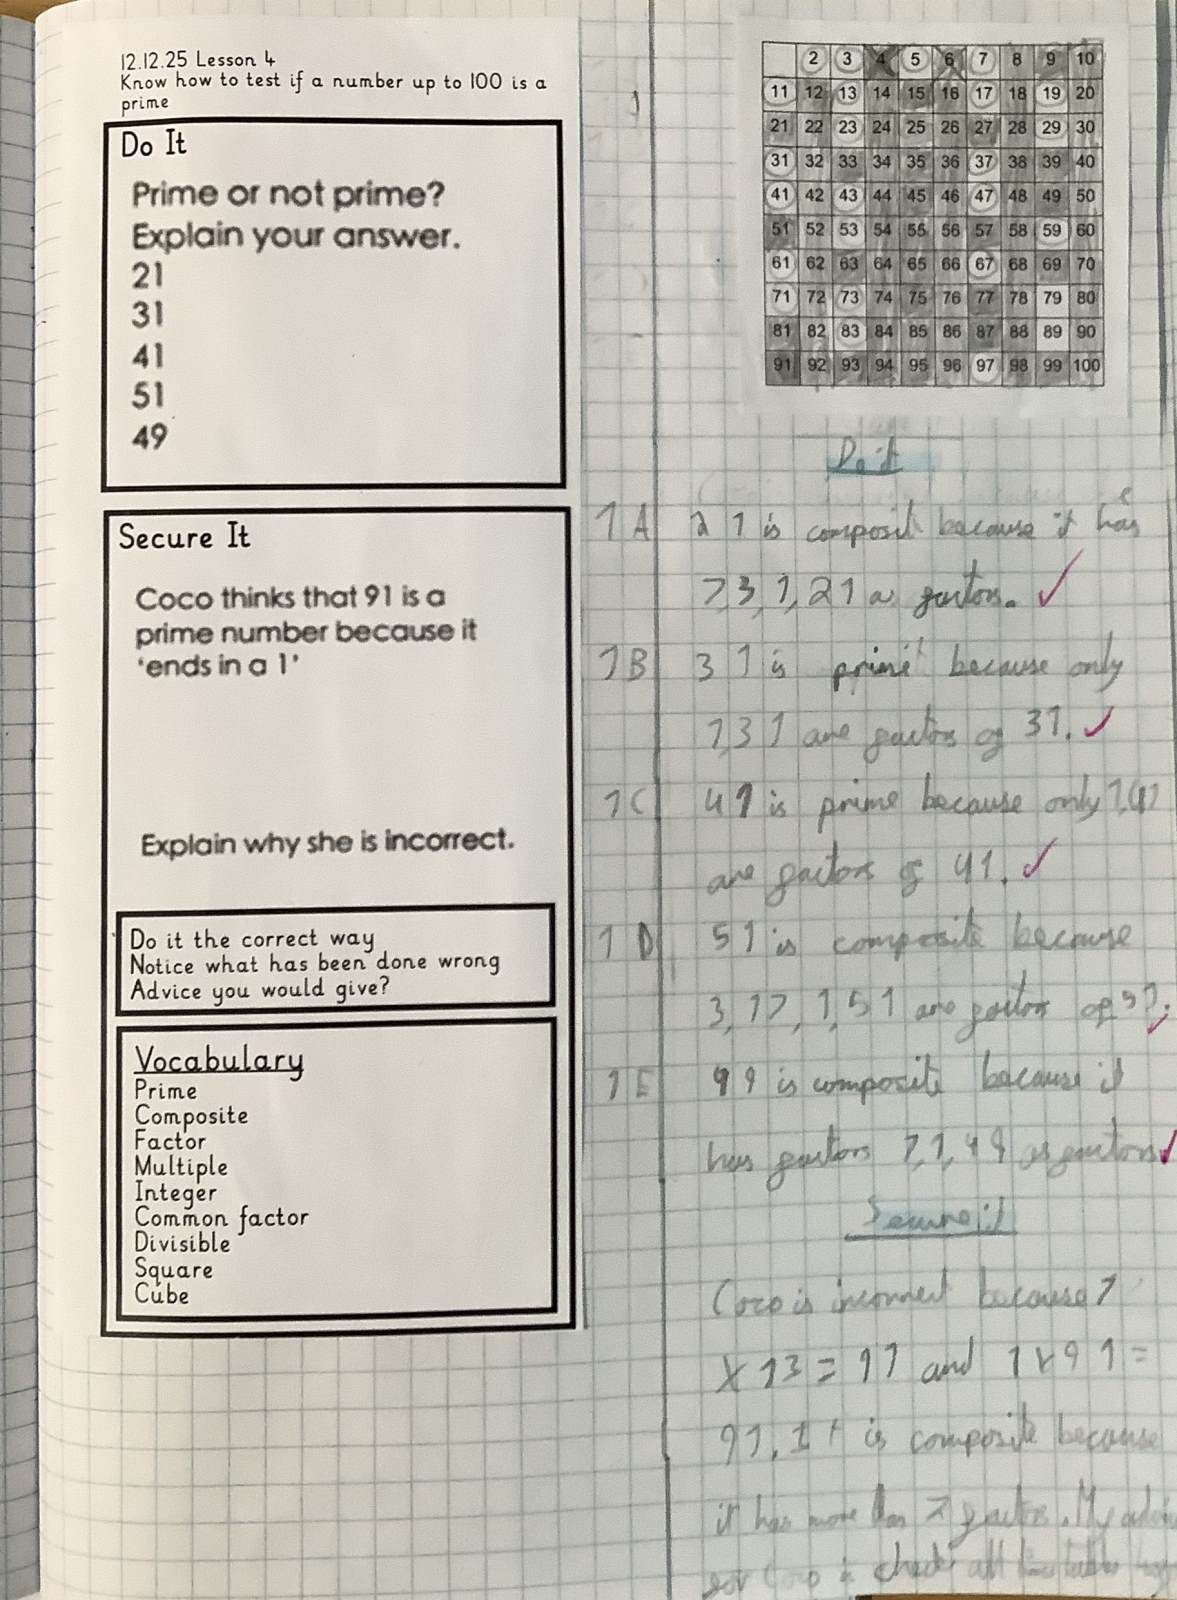 12.12.25 Lesson 4
Know how to test if a number up to 100 is a
prime
Do It
Prime or not prime?
Explain your answer.
21
31
41
51
49
Secure It
Coco thinks that 91 is a
prime number because it
'ends in a 1'
Explain why she is incorrect.
Do it the correct way
Notice what has been done wrong
Advice you would give?
Vocabulary
Prime
Composite
Factor
Multiple
Integer
Common factor
Divisible
Square
Cube
2 3 4 5 6 7 8 9 10
11 12 13 14 15 16 17 18 19 20
21 22 23 24 25 26 27 28 29 30
31 32 33 34 35 36 37 38 39 40
41 42 43 44 45 46 47 48 49 50
51 52 53 54 55 56 57 58 59 60
61 62 63 64 65 66 67 68 69 70
71 72 73 74 75 76 77 78 79 80
81 82 83 84 85 86 87 88 89 90
91 92 93 94 95 96 97 98 99 100
Do it
1A 21 is composit because it has
7,3,1,21 as factors.
1B 31 is prime because only
1,31 are factors of 31.
1C 41 is prime because only 1,41
are factors of 41.
1D 51 is composite because
3,17,1,51 are factors of 51.
1E 49 is composite because it
has factors 7,1,49 as factors
Secure it
Coco is incorrect because 7
x 13 = 91 and 1 x 91 =
91. It is composite because
it has more than 2 factors. My
for Coco is check all